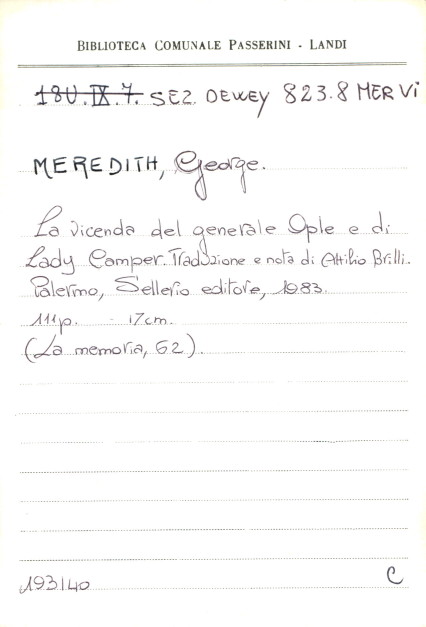 BIBLIOTECA COMUNALE PASSERINI - LANDI
180.IX.7. SEZ. DEWEY 823.8 MER Vi
MEREDITH, George.
La vicenda del generale Ople e di
Lady Camper. Traduzione e nota di Attilio Brilli.
Palermo, Sellerio editore, 1983.
111p. - 17cm.
(La memoria, 62).
193140 C